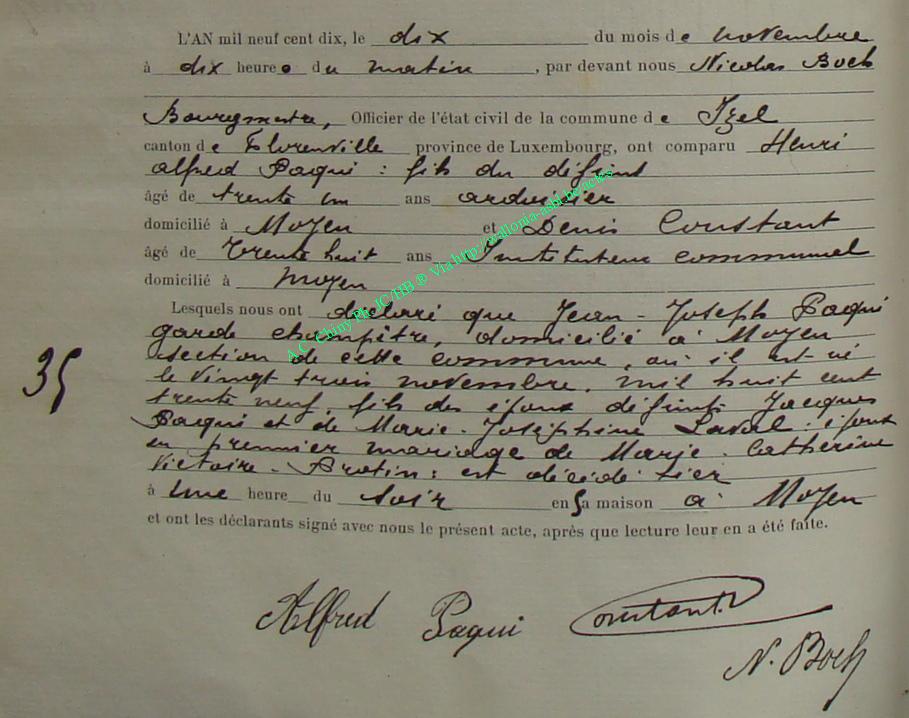 L'AN mil neuf cent dix, le dix du mois de novembre
à dix heure o du matin, par devant nous Nicolas Boch
Bourgmestre, Officier de l'état civil de la commune de Izel
canton de Florenville province de Luxembourg, ont comparu Henri
alfred Paqui : fils du défunt
âgé de trente un ans ardoisier
domicilié à Moyen et Denis Constant
âgé de Trente huit ans Instituteur communal
domicilié à Moyen
Lesquels nous ont déclaré que Jean-Joseph Paqui
garde champêtre, domicilié à Moyen
section de cette commune, où il est né
le vingt trois novembre, mil huit cent
trente neuf, fils des époux défunts Jacques
Paqui et de Marie-Joséphine Laval : époux
en premier mariage de Marie-Catherine
Victoire-Protin : est décédé hier
35
à une heure du soir en sa maison à Moyen
et ont les déclarants signé avec nous le présent acte, après que lecture leur en a été faite.
Alfred Paqui Constant
N. Boch
A.C. Chiny Ph. JC/HB ® Via http://wallonia-asbl.be/actes